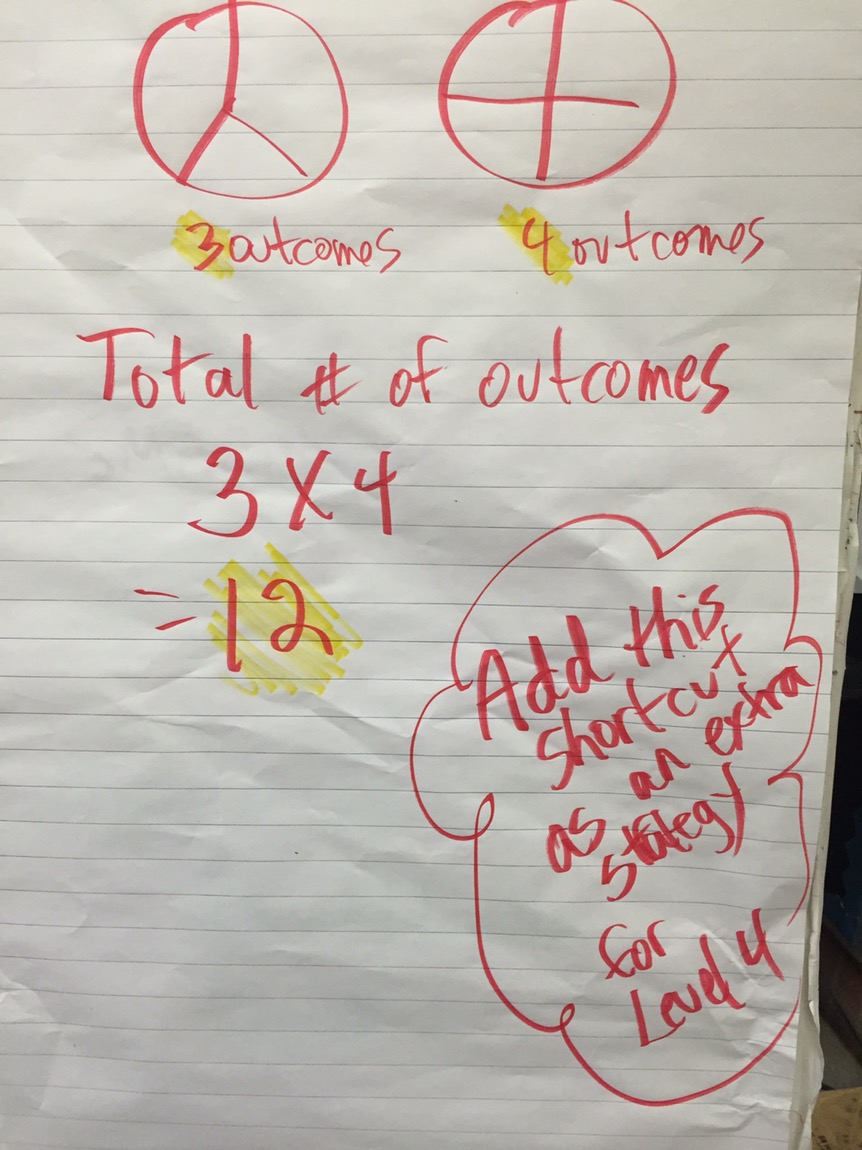 3 outcomes
4 outcomes
Total # of outcomes
3 X 4
= 12
Add this
shortcut
as an extra
strategy
for
Level 4